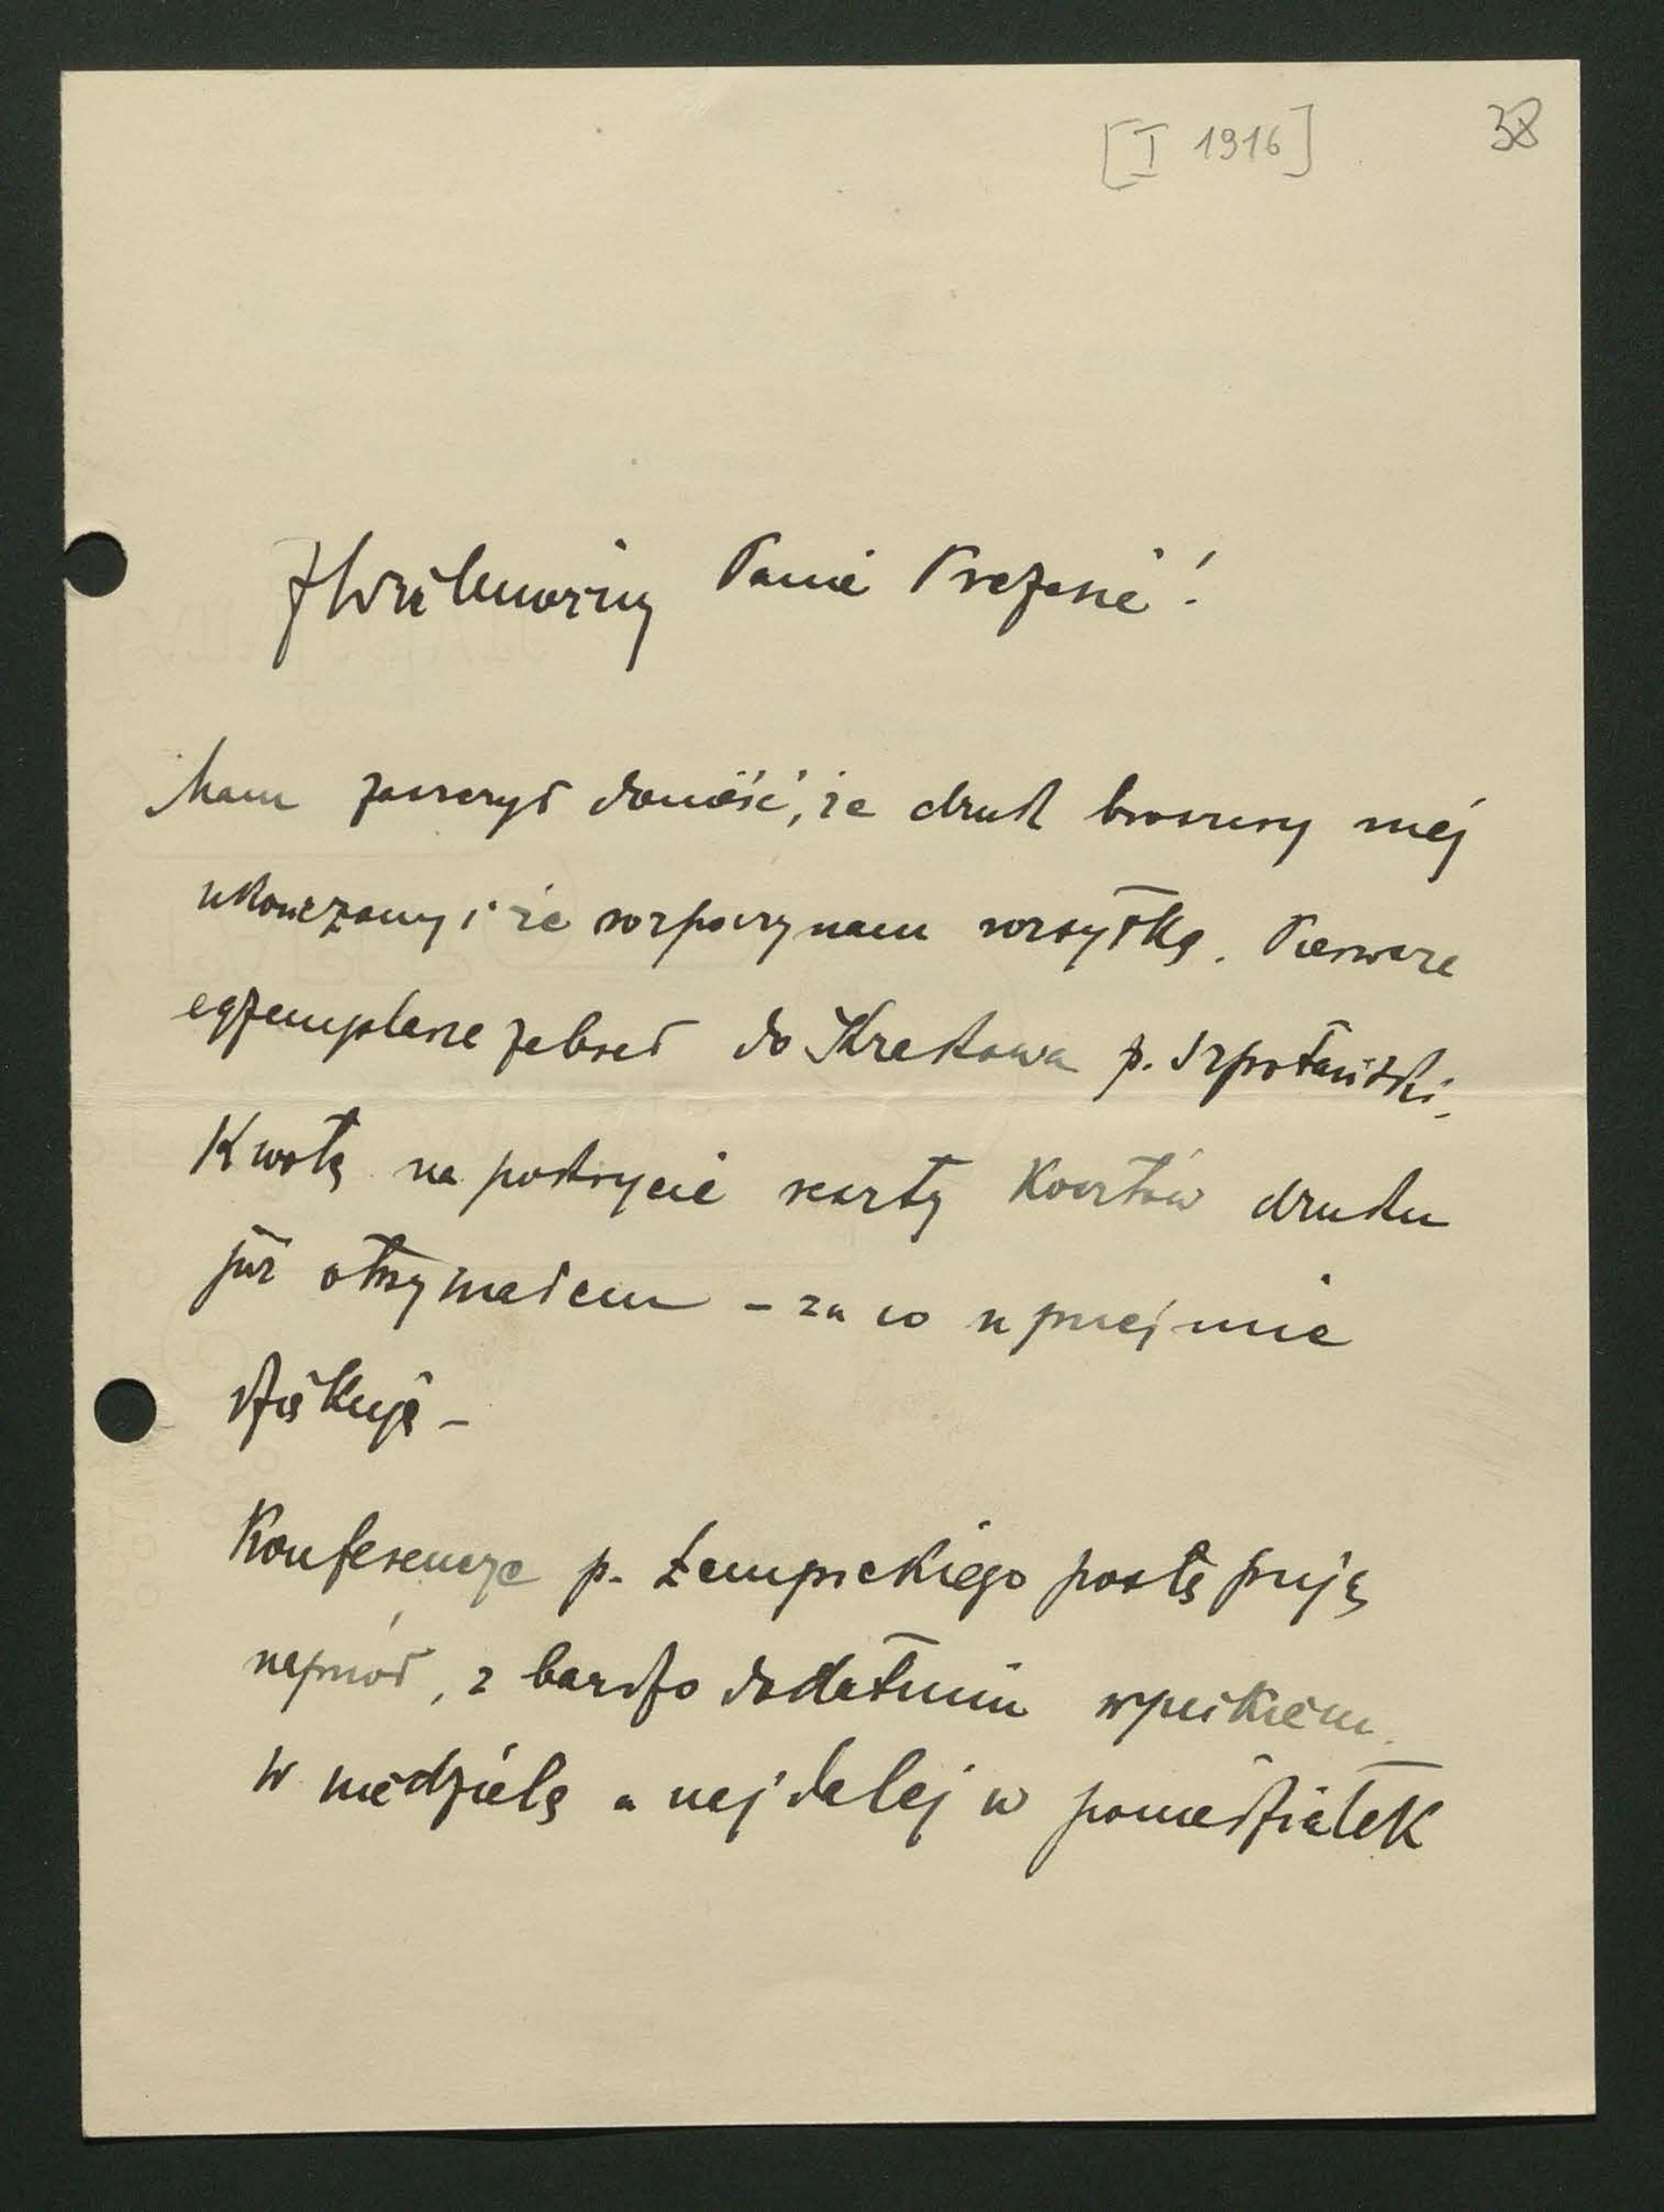 [I 1916]
38
JWielmożny Panie Prezesie!
Mam zaszczyt donieść, że druk broszury mej
ukończony i że rozpoczynam rozsyłkę. Pierwsze
egzemplarze zabrał do Krakowa p. Szpotański.
Kwotę na pokrycie reszty kosztów druku
już otrzymałem – za co uprzejmie
dziękuję –
Konferencye p. Łempickiego postępują
naprzód, z bardzo dodatnim wynikiem.
W niedzielę a najdalej w poniedziałek